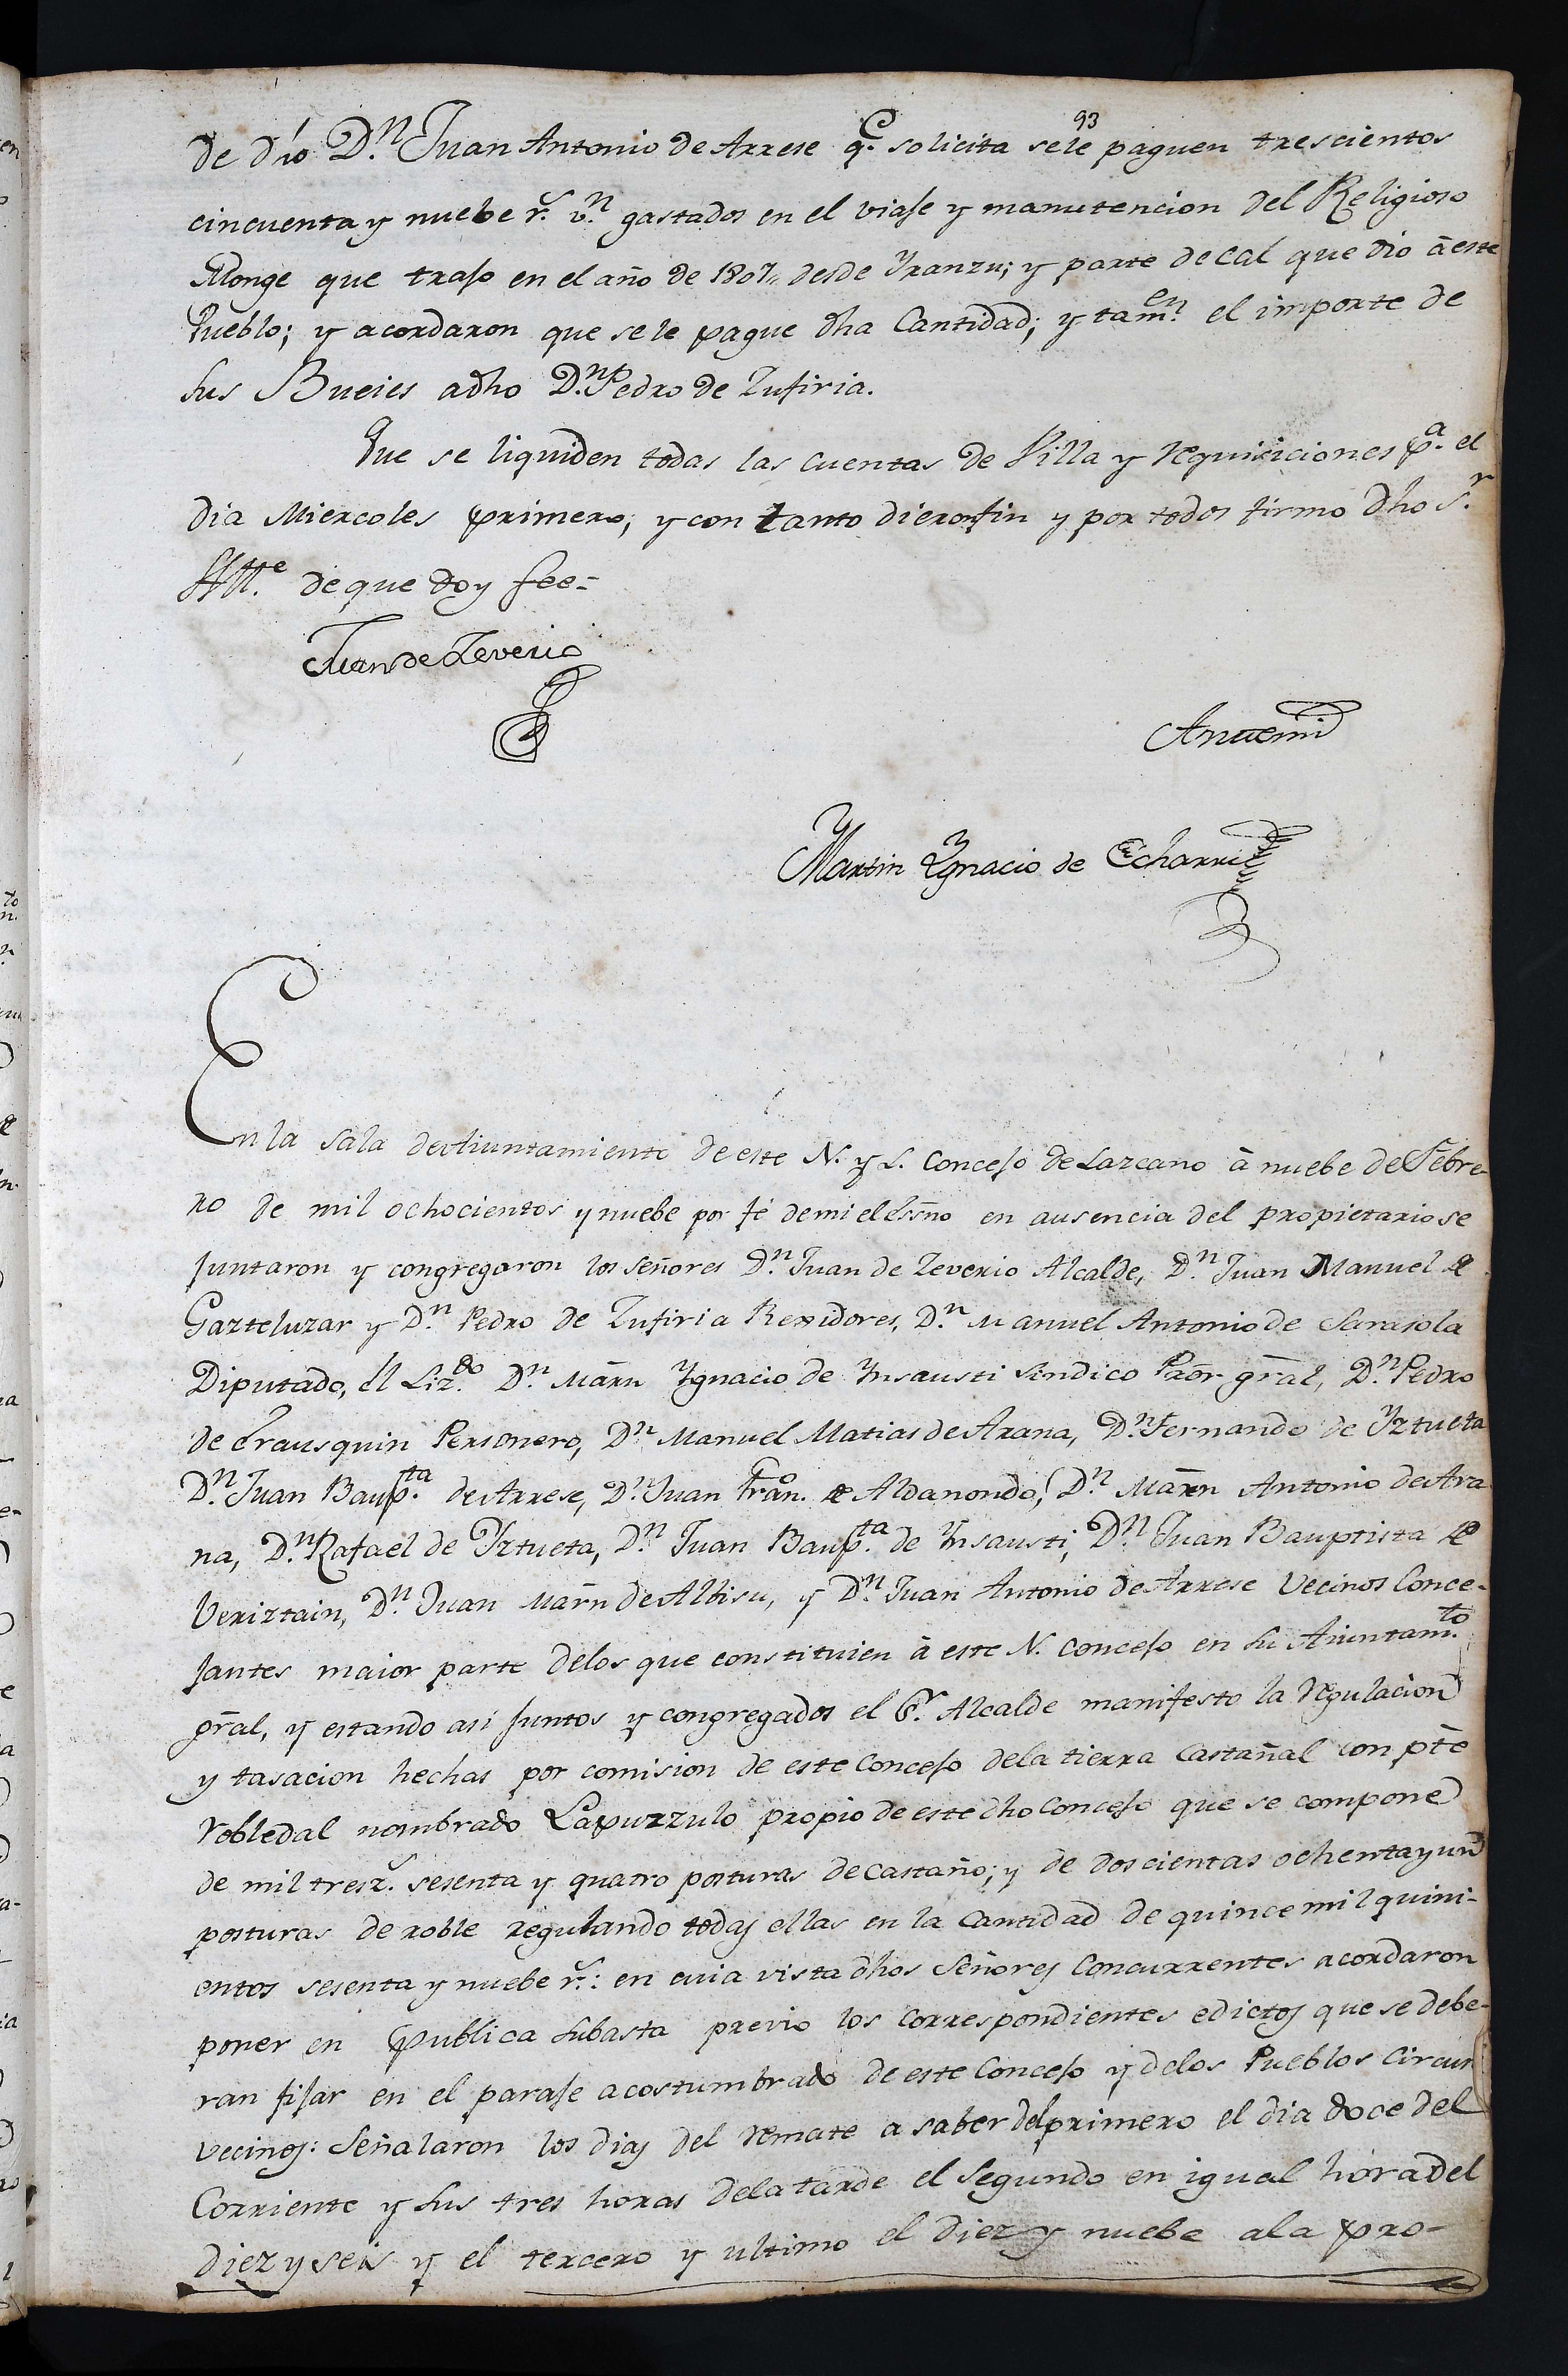 93
de dho D.n Juan Antonio de Arrese q.e solicita sele paguen trescientos
cincuenta y nuebe r.s v.n gastados en el viaje y manutencion del Religioso
Monge que trajo en el año de 1807,, desde Yranzu; y parte de cal que dio à este
Pueblo; y acordaron que sele pague dha Cantidad; y tam.en el importe de
sus Bueies adho D.n Pedro de Zufiria.
Que se liquiden todas las cuentas de Villa y requisiciones p.a el
dia Miercoles primero; y con tanto dieron fin y por todos firmo dho S.r
All.e de que doy fee=
Juan de Zeverio
Ante mi
Martin Ygnacio de Echarri
En la sala de Aiuntamiento de este N. y L. Concejo de Lazcano à nuebe de Febre-
ro de mil ochocientos y nuebe por fé de mi el Essno en ausencia del propietario se
juntaron y congregaron los Señores D.n Juan de Zeverio Alcalde, D.n Juan Manuel de
Gazteluzar y D.n Pedro de Zufiria Rexidores, D.n Manuel Antonio de Sarasola
Diputado, el Liz.do D.n Marn Ygnacio de Ynsausti Sindico Pror gral, D.n Pedro
de Erausquin Personero, D.n Manuel Matias de Arana, D.n Fernando de Yztueta
D.n Juan Baup.ta de Arrese, D.n Juan Fran.co de Aldanondo, D.n Marn Antonio de Ara
na, D.n Rafael de Yztueta, D.n Juan Baup.ta de Ynsausti, D.n Juan Bauptista de
Veriztain, D.n Juan Marn de Albisu, y D.n Juan Antonio de Arrese Vecinos Conce-
jantes maior parte delos que constituien à este N. Concejo en su Aiuntam.to
gral, y estando asi juntos y congregados el S.r Alcalde manifesto la regulacion
y tasacion hechas por comision de este Concejo dela tierra Castañal con pte
robledal nombrado Lapurzulo propio de este dho Concejo que se compone
de mil tresz.s sesenta y quatro posturas de castaño; y de doscientas ochenta y un
posturas de roble regulando todas ellas en la Cantidad de quince mil quini-
entos sesenta y nuebe r.s: en cuia vista dhos Señores Concurrentes acordaron
poner en publica subasta previo los correspondientes edictos que se debe-
ran fijar en el paraje acostumbrado de este Concejo y delos Pueblos circun
vecinos: Señalaron los dias del remate a saber del primero el dia doce del
Corriente y sus tres horas dela tarde el Segundo en igual hora del
diez y seis y el tercero y ultimo el diez y nuebe ala pro-